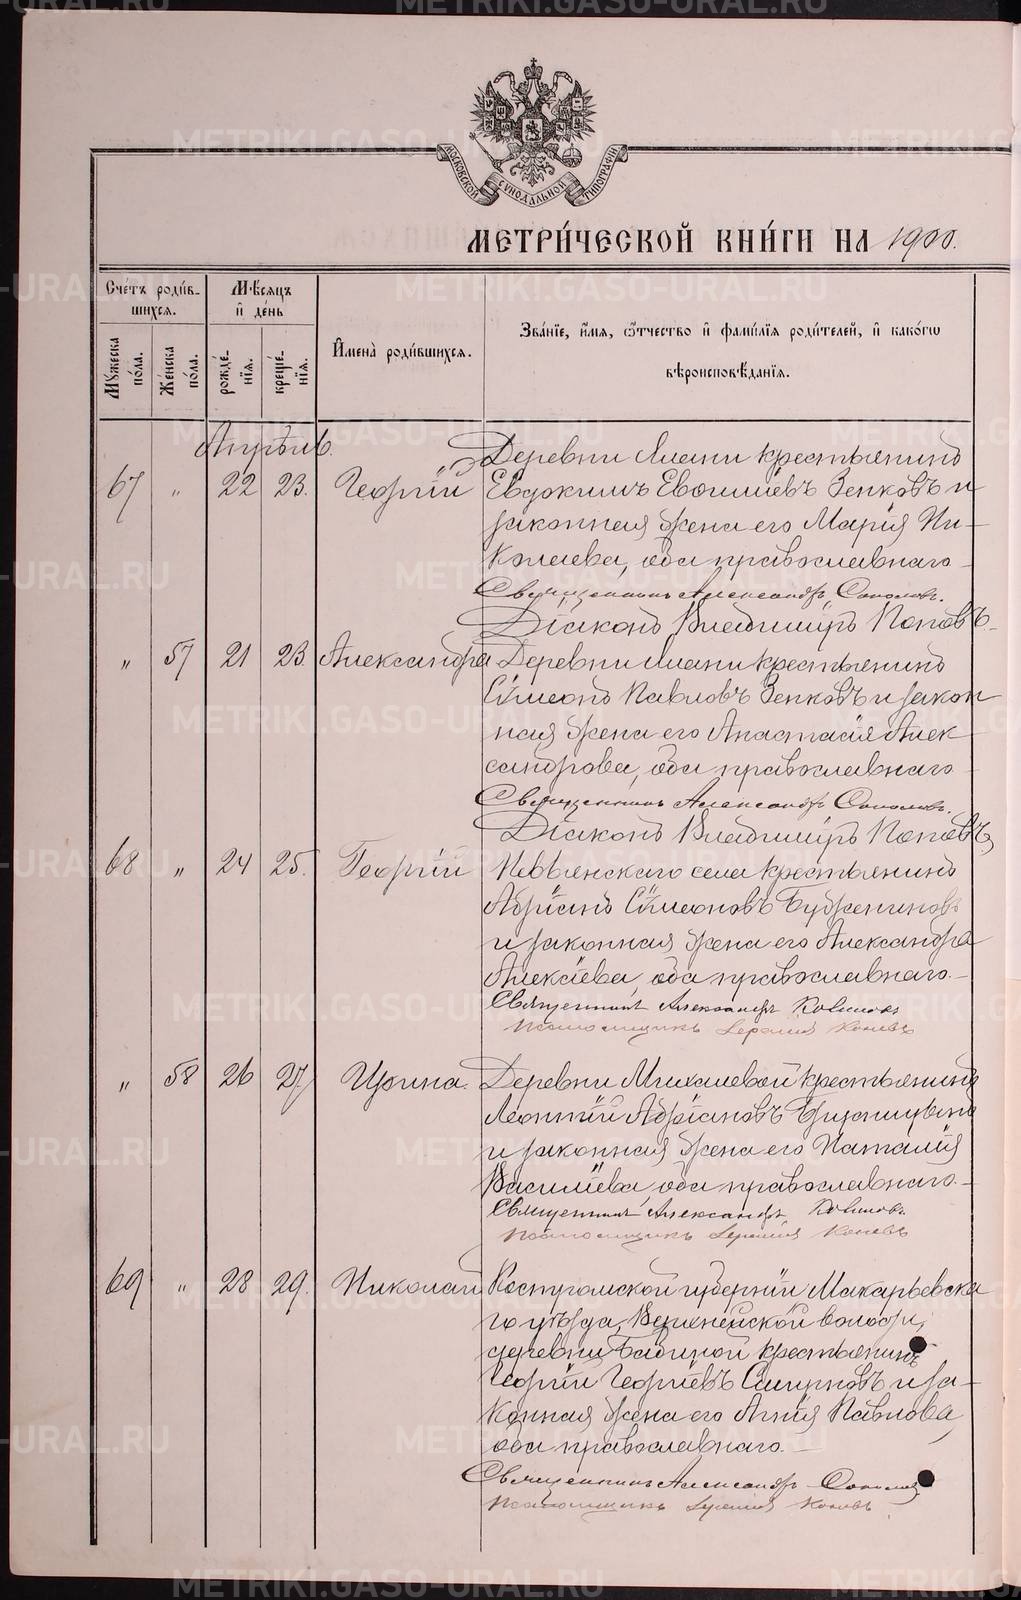 METRIKI.GASO-URAL.RU
МОСКОВСКОЙ СѴНОДАЛЬНОЙ ТИПОГРАФІИ
МЕТРИ́ЧЕСКОЙ КНИ́ГИ НА 1900.
Сче́тъ роди́в-
шихся.
Мѣ́сяцъ
и҆ де́нь
Мꙋ́жеска по́ла.
Же́нска по́ла.
рожде́-нїя.
креще́-нїя.
И҆мена̀ роди́вшихся.
Зва́нїе, и҆́мя, ѻ҆́тчество и҆ фами́лїя роди́телей, и҆ како́гѡ
вѣроисповѣ́данїя.
Апрѣль.
67 „ 22 23. Георгій
Деревни крестьянинъ
Евдокимъ Евѳиміевъ Зенковъ и
законная жена его Марія Ни-
колаева, оба православнаго
Священникъ Александръ Соколовъ.
Діаконъ Владиміръ Поповъ.
„ 57 21 23. Александра Деревни крестьянинъ
Сѵмеонъ Павловъ Зенковъ и закон
ная жена его Анастасія Алек
сандрова, оба православнаго
Священникъ Александръ Соколовъ.
Діаконъ Владиміръ Поповъ
68 „ 24 25. Георгій Невьянскаго села крестьянинъ
Адріанъ Сѵмеоновъ
и законная жена его Александра
Алексіева, оба православнаго.
Священникъ Александръ
Псаломщикъ Іеремія Коневъ
„ 58 26 27. Ирина. Деревни Михалевой крестьянинъ
Леонтій Адріановъ
и законная жена его Наталія
Василіева, оба православнаго.
Священникъ Александръ
Псаломщикъ Іеремія Коневъ
69 „ 28 29. Николай Костромской губерніи Макарьевска
го уѣзда, волости,
деревни крестьянинъ
Георгій Георгіевъ Смирновъ и за-
конная жена его Агнія Павлова,
оба православнаго.
Священникъ Александръ
Псаломщикъ Іеремія Коневъ